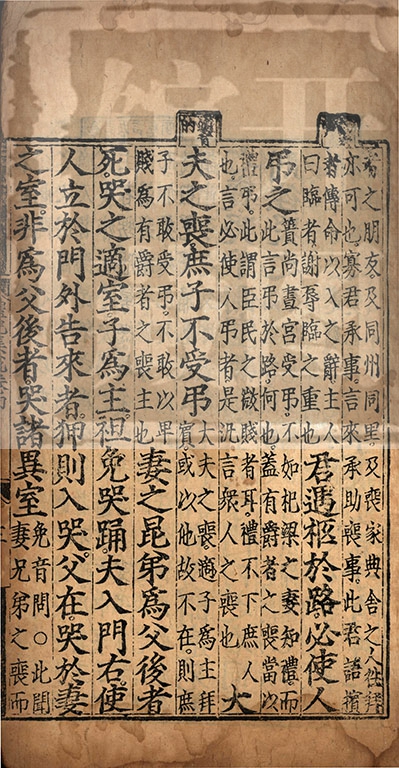 之朋友及同州同里及喪家典舍之人往拜
亦可也寡君承事言來承助喪事此君語擯
者傳命以入之辭主人
曰臨者謝辱臨之重也
君遇柩於路必使人
弔之
蕢尚畫宮受弔不如杞梁之妻知禮而
此言弔於路何也蓋有爵者之喪當以
禮弔此謂臣民之微賤者耳禮不下庶人
也言必使人弔者是汎言衆人之喪也
大
夫之喪庶子不受弔
大夫之喪適子爲主拜
賓或以他故不在則庶
子不敢受弔不敢以卑
賤爲有爵者之喪主也
妻之昆弟爲父後者
死哭之適室子爲主袒免哭踊夫入門右使
人立於門外告來者狎則入哭父在哭於妻
之室非爲父後者哭諸異室
免音問○此聞
妻兄弟之喪而